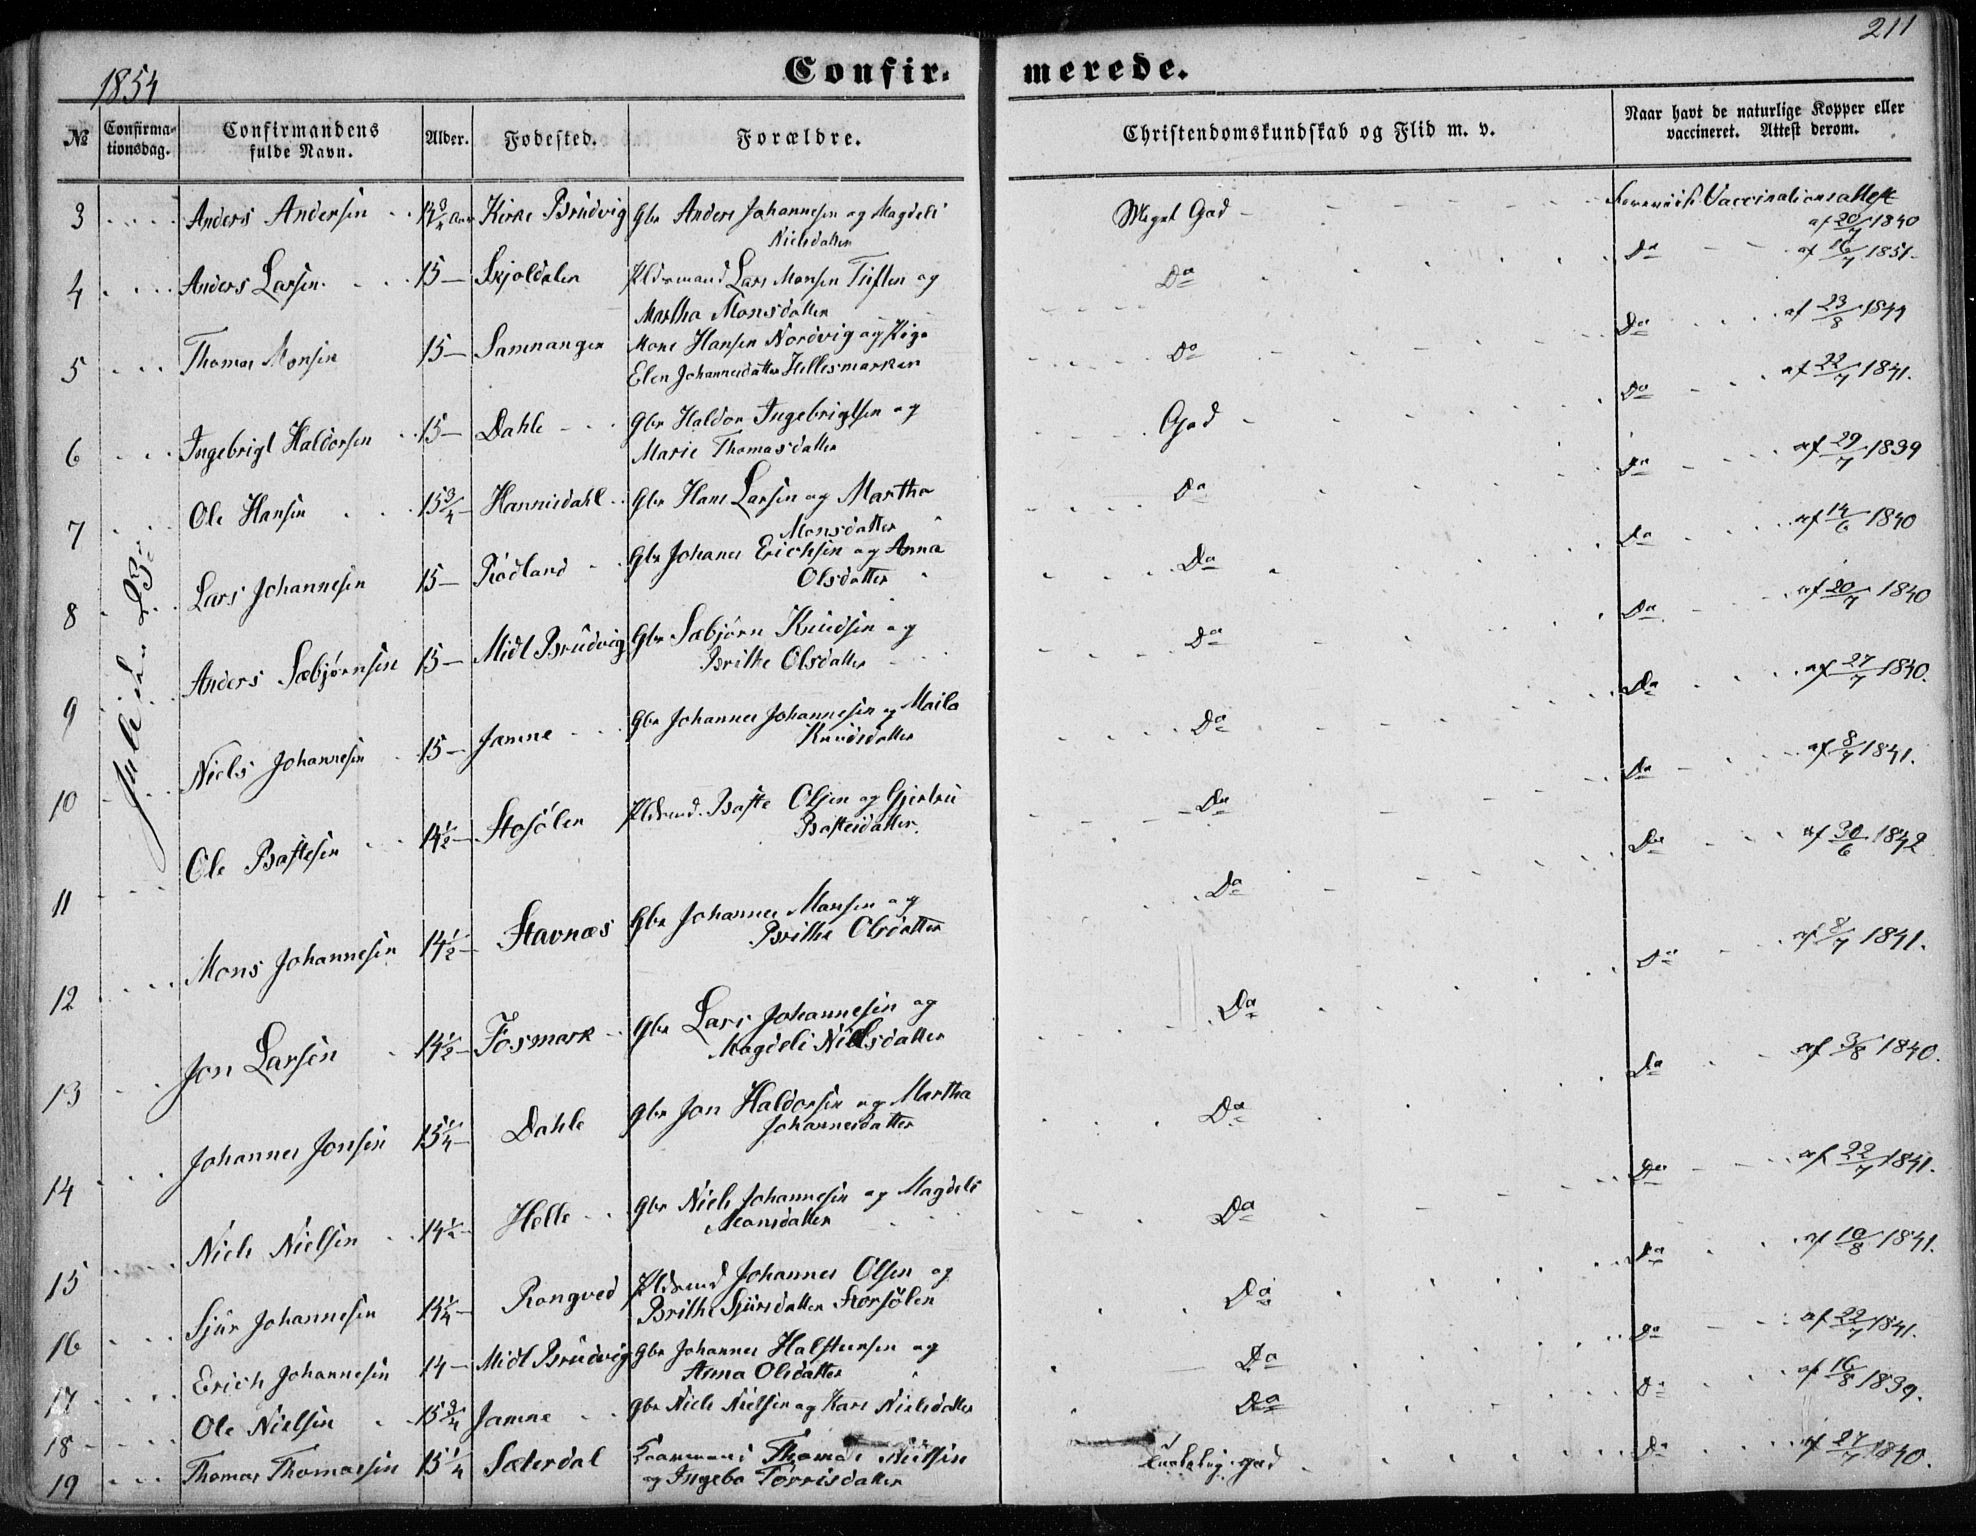 211
1854
Confirmerede.
№ Confirmationsdag. Confirmandens fulde Navn. Alder. Fødested. Forældre. Christendomskundskab og Flid m. v. Naar havt de naturlige Kopper eller vaccineret. Attest derom.
Julii d. 23
3 Anders Andersen 14 3/4 Aar Kirke Brudvig Gbr Anders Johannesen og Magdeli Meget God Vaccinationsattest
Nielsdatter af 20/7 1840
4 Anders Larsen 15 Skjoldalen Pldsmand Lars Monsen Tuften og Do Do af 16/7 1851
Martha Monsdatter
5 Thomas Monsen 15 Samnangen Mons Hansen Nordvig og Pige Do Do af 23/8 1844
Elen Johannesdatter Hellesmarken
6 Ingebrigt Haldorsen 15 Dahle Gbr Haldor Ingebrigtsen og God Do af 22/7 1841.
Marie Thomasdatter
7 Ole Hansen 15 3/4 Hannisdahl Gbr Hans Larsen og Martha Do Do af 29/7 1839
Monsdatter
8 Lars Johannesen 15 Rødland Gbr Johanes Erichsen og Anna Do Do af 14/6 1840
Olsdatter
9 Anders Sæbjørnsen 15 Midt Brudvig Gbr Sæbjørn Knudsen og Do Do af 20/7 1840
Brithe Olsdatter
10 Niels Johannesen 15 Jamne Gbr Johannes Johannesen og Maila Do Do af 27/7 1840.
Knudsdatter
11 Ole Baftesen 14 1/2 Stosølen Pldsmd. Bafte Olsen og Gjertru Do Do af 8/7 1841.
Baftesdatter.
12 Mons Johannesen 14 1/2 Stavnæs Gbr Johannes Monsen og Do Do af 30/6 1842
Brithe Olsdatter
13 Jon Larsen 14 1/2 Fosmark Gbr Lars Johannesen og Do Do af 8/7 1841.
Magdeli Nielsdatter
14 Johannes Jonsen 15 1/4 Dahle Gbr Jon Haldorsen og Martha Do Do af 3/8 1840.
Johannesdatter
15 Niels Nielsen 14 1/2 Helle Gbr Niels Johannesen og Magdeli Do Do af 22/7 1841.
Monsdatter
16 Sjur Johannesen 14 1/4 Rongved Pldsmd Johannes Olsen og Do Do af 10/8 1841.
Brithe Sjursdatter Storsølen
17 Erich Johannesen 14 Midt Brudvig Gbr Johannes Halstensen og Do Do af 22/7 1841.
Anna Olsdatter
18 Ole Nielsen 15 3/4 Jamne Gbr Niels Nielsen og Kari Nielsdatter Do Do af 16/8 1839.
19 Thomas Thomassen 15 1/4 Sæterdal Thomas Nielsen god Do af 27/7 1840.
og Ingebo Torrisdatter